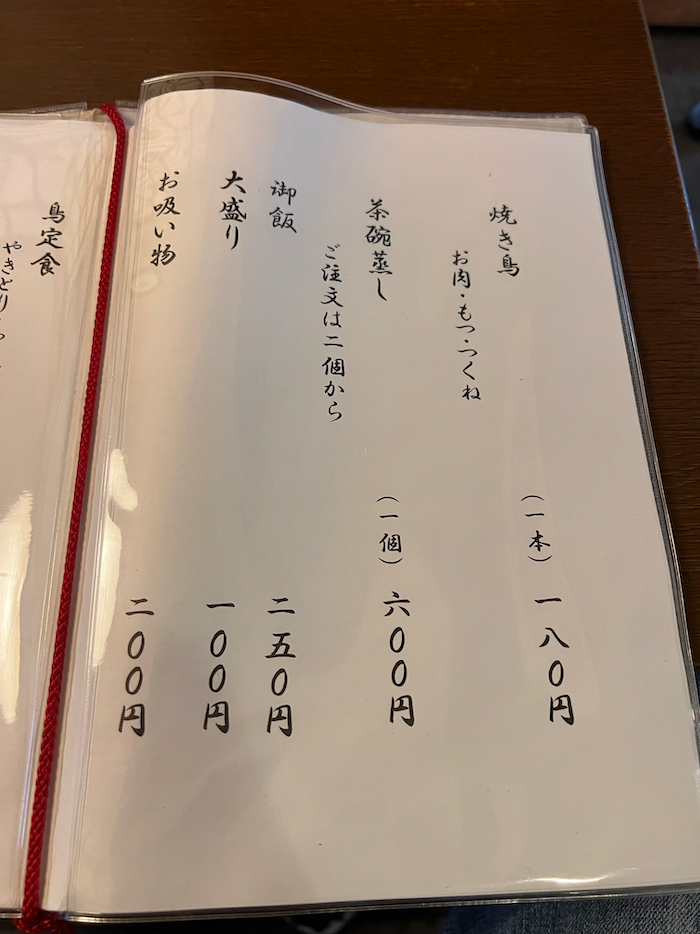 焼き鳥
お肉・もつ・つくね
(一本) 一八〇円
茶碗蒸し
ご注文は二個から
(一個) 六〇〇円
御飯
二五〇円
大盛り
一〇〇円
お吸い物
二〇〇円
鳥定食
やきとり